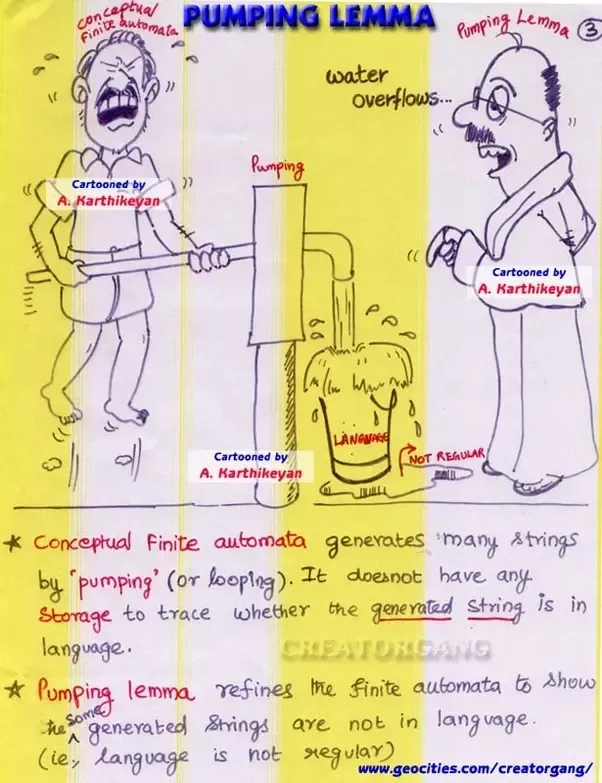 PUMPING LEMMA
conceptual
Finite automata
Pumping Lemma
3
water
overflows...
Pumping
Cartooned by
A. Karthikeyan
Cartooned by
A. Karthikeyan
LANGUAGE
NOT REGULAR
Cartooned by
A. Karthikeyan
★ Conceptual Finite automata generates many strings
by 'pumping' (or looping). It doesnot have any
storage to trace whether the generated string is in
language.
CREATORGANG
★ Pumping lemma refines the finite automata to show
the some generated strings are not in language.
(ie, language is not regular)
www.geocities.com/creatorgang/